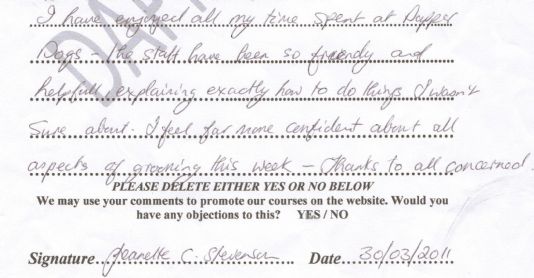 I have enjoyed all my time spent at Dapper
Dogs - the staff have been so friendly and
helpful, explaining exactly how to do things I wasn't
sure about. I feel far more confident about all
aspects of grooming this week - Thanks to all concerned.
PLEASE DELETE EITHER YES OR NO BELOW
We may use your comments to promote our courses on the website. Would you
have any objections to this? YES / NO
Signature...Jeanette C. Stevenson...... Date....30/03/2011